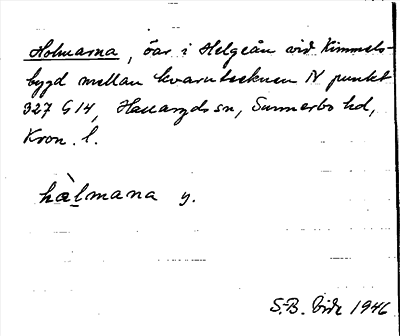 Holmarna, öar i Helgeån vid Kimmels-
bygd mellan kvarntecknen N punkt
327 G14, Hallaryds sn, Sunnerbo hd,
Kron. l.
hàl̲mana y.
S.-B. Vide 1946